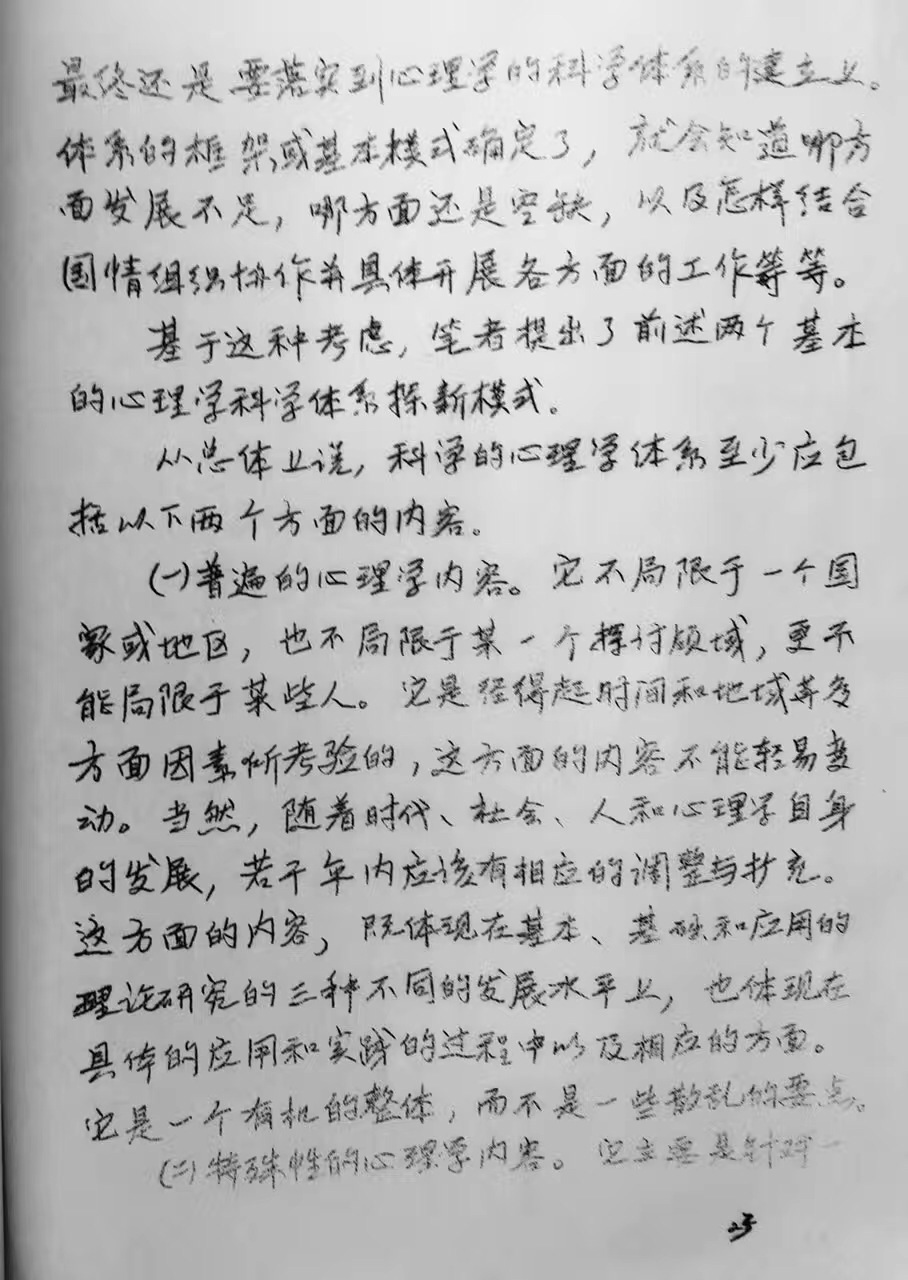 最终还是要落实到心理学的科学体系的建立上。
体系的框架或基本模式确定了，就会知道哪方
面发展不足，哪方面还是空缺，以及怎样结合
国情组织协作并具体开展各方面的工作等等。
基于这种考虑，笔者提出了前述两个基本
的心理学科学体系探新模式。
从总体上说，科学的心理学体系至少应包
括以下两个方面的内容。
(一)普遍的心理学内容。它不局限于一个国
家或地区，也不局限于某一个探讨领域，更不
能局限于某些人。它是经得起时间和地域等多
方面因素所考验的，这方面的内容不能轻易变
动。当然，随着时代、社会、人和心理学自身
的发展，若干年内应该有相应的调整与扩充。
这方面的内容，既体现在基本、基础和应用的
理论研究的三种不同的发展水平上，也体现在
具体的应用和实践的过程中以及相应的方面。
它是一个有机的整体，而不是一些散乱的要点。
(二)特殊性的心理学内容。它主要是针对一
25